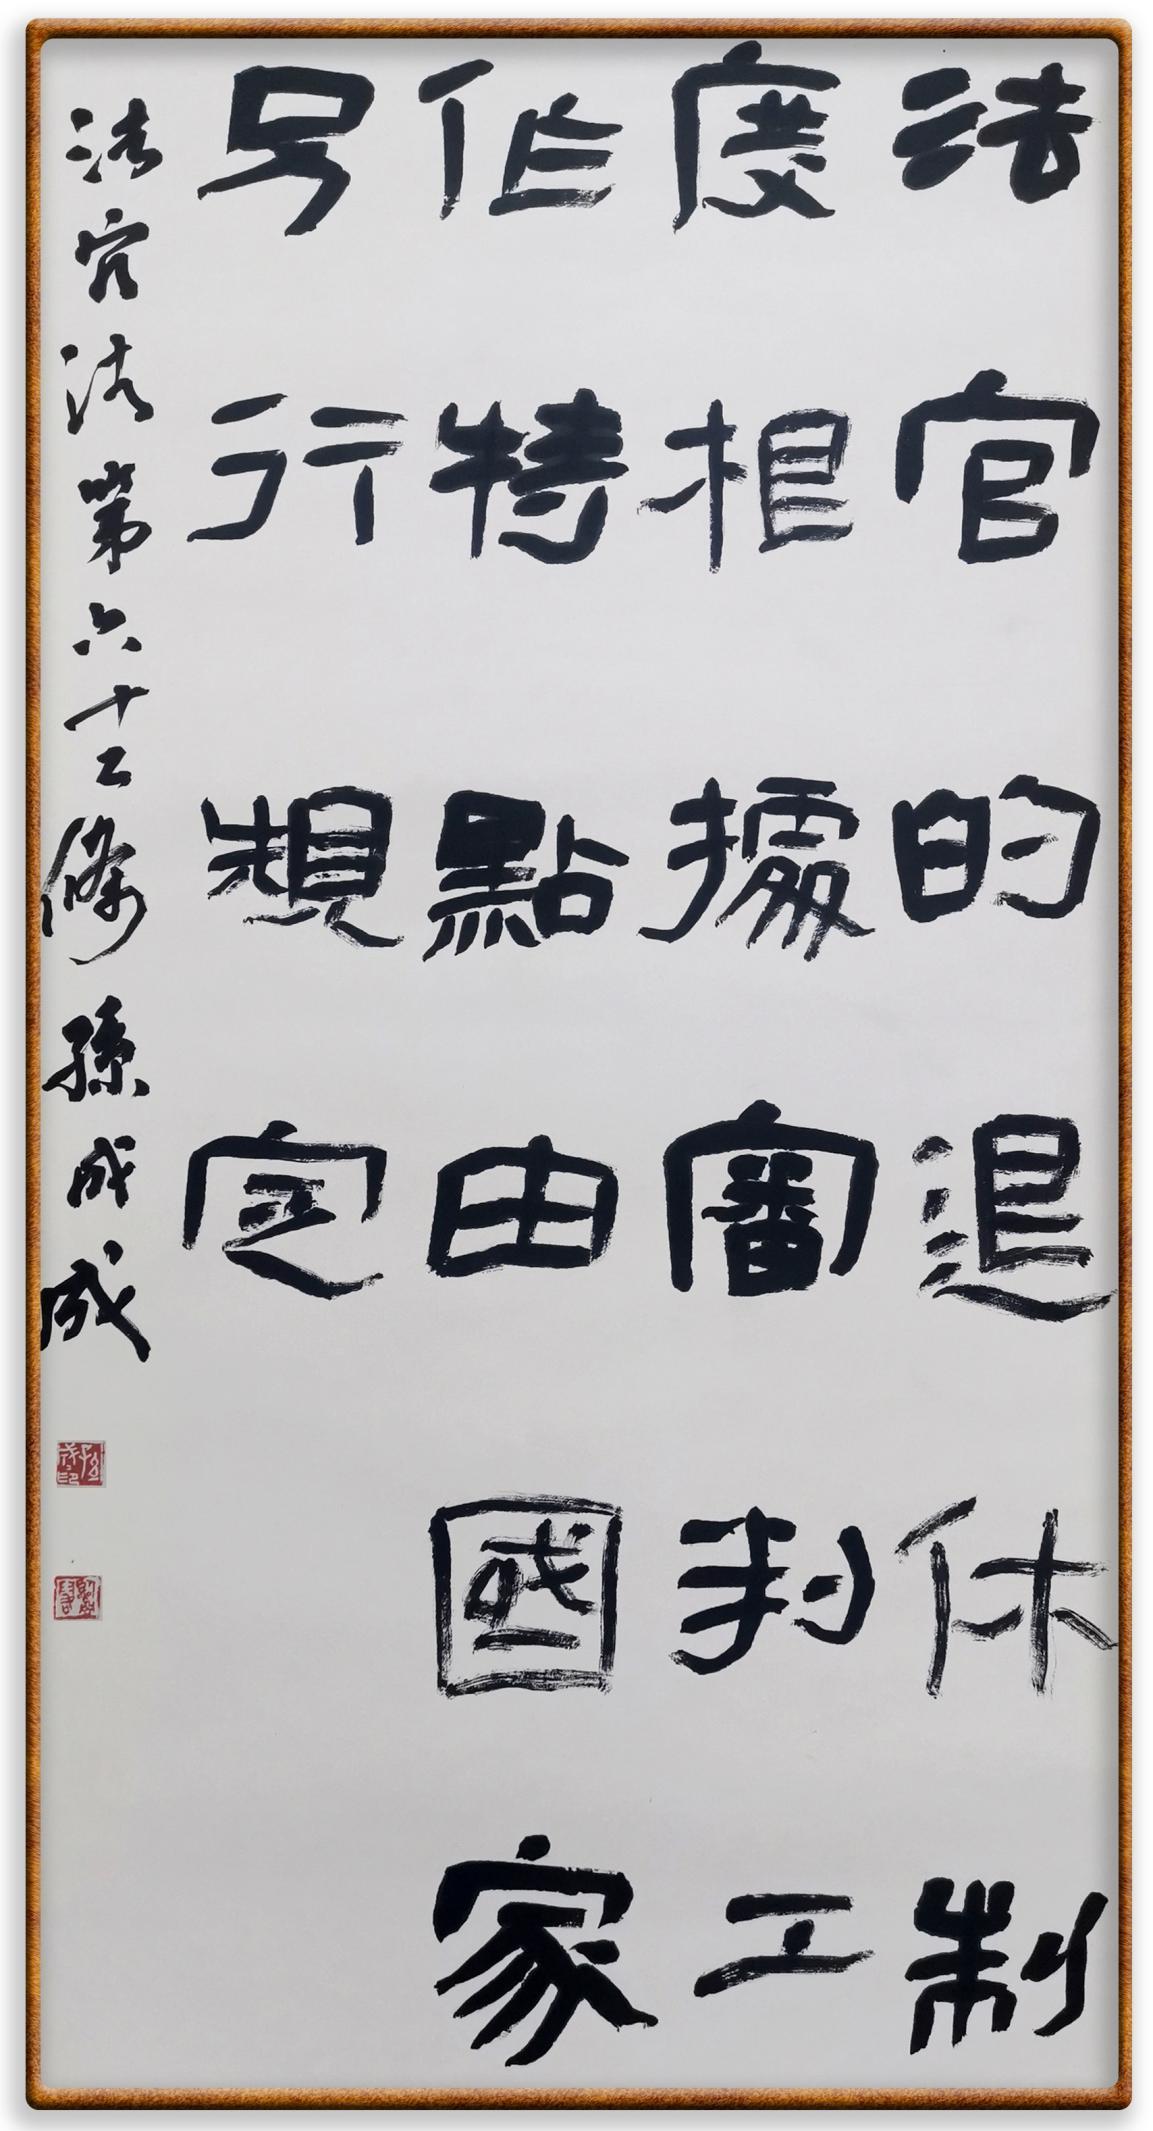 法官的退休制
度根據審判工
作特點由國家
另行規定
法官法第六十二條 孫成成